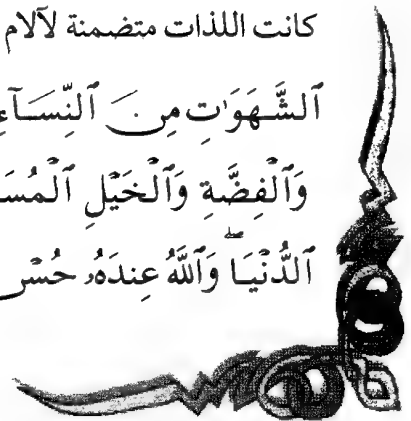 كانت اللذات متضمنة لآلام
ٱلشَّهَوَٰتِ مِنَ ٱلنِّسَآءِ
وَٱلْفِضَّةِ وَٱلْخَيْلِ ٱلْمُسَ
ٱلدُّنْيَا ۖ وَٱللَّهُ عِندَهُۥ حُسْ